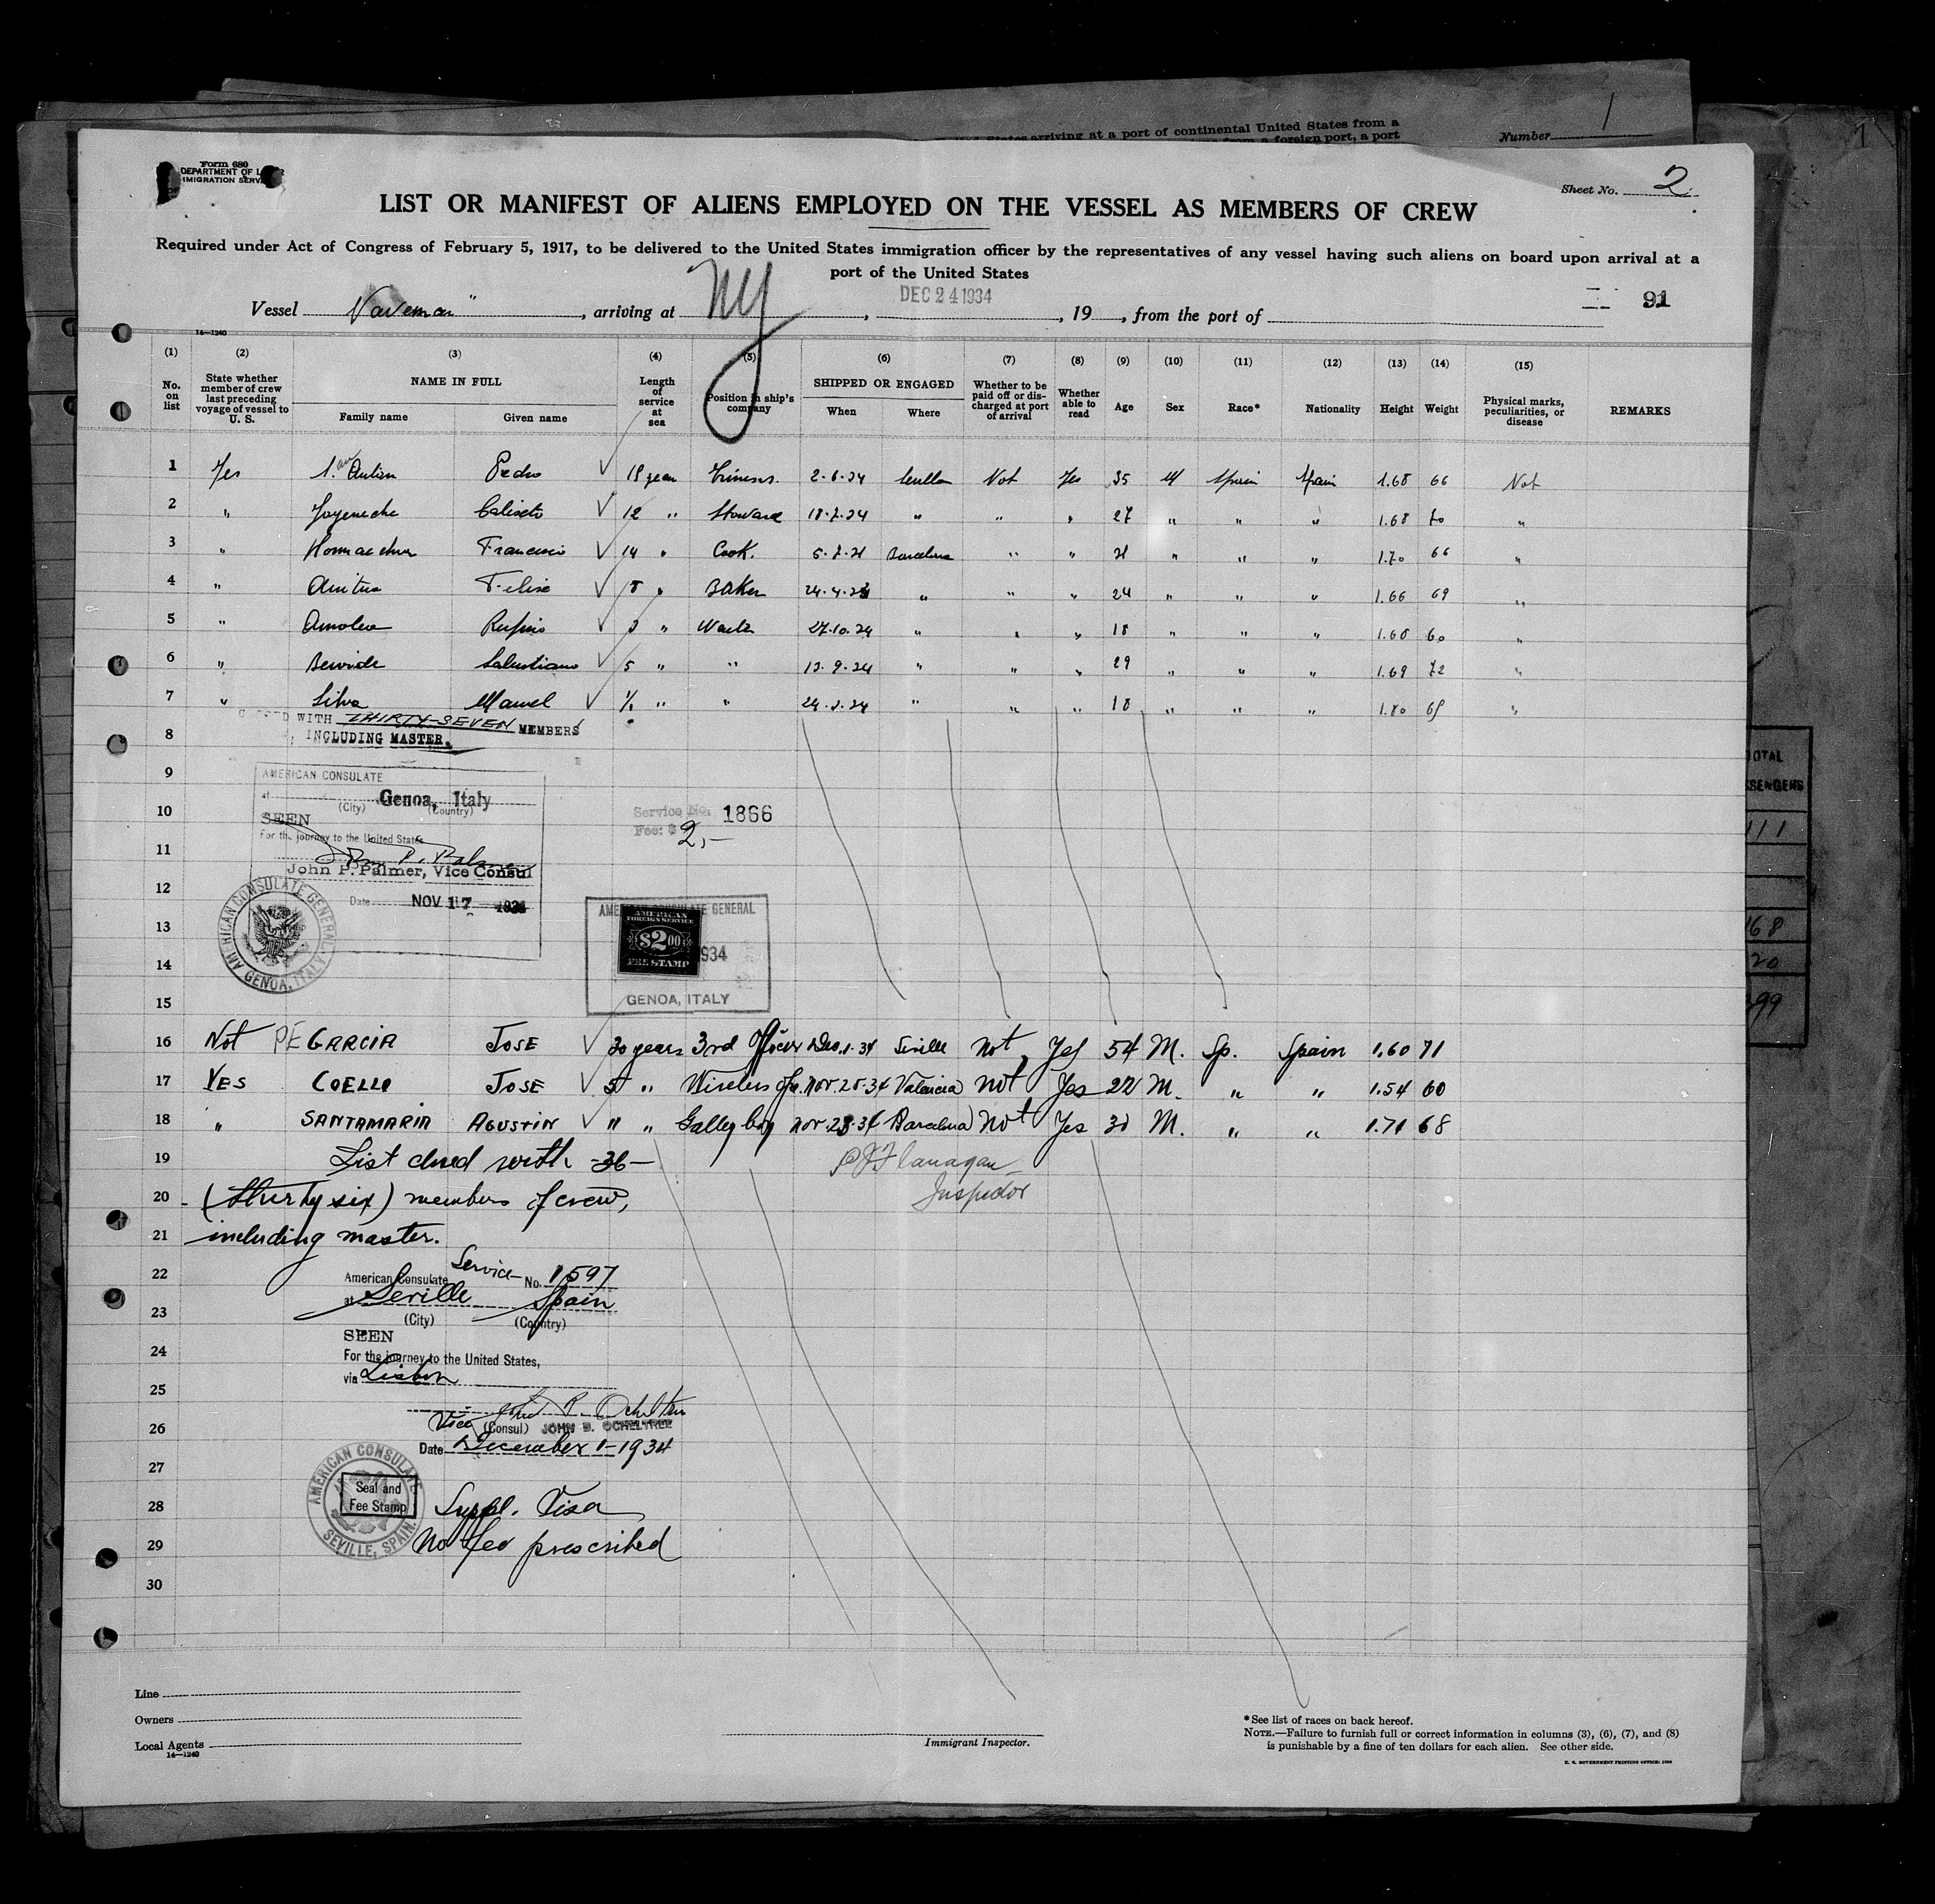 States arriving at a port of continental United States from a
from a foreign port, a port
Number 1
Form 680
DEPARTMENT OF
IMIGRATION SERV
Sheet No. 2
LIST OR MANIFEST OF ALIENS EMPLOYED ON THE VESSEL AS MEMBERS OF CREW
Required under Act of Congress of February 5, 1917, to be delivered to the United States immigration officer by the representatives of any vessel having such aliens on board upon arrival at a
port of the United States
DEC 24 1934
91
Vessel Navemar", arriving at NY, , 19 , from the port of
14—1240
(1) (2) (3) (4) (5) (6) (7) (8) (9) (10) (11) (12) (13) (14) (15)
No. on list
State whether member of crew last preceding voyage of vessel to U. S.
NAME IN FULL
Family name Given name
Length of service at sea
Position in ship's company
SHIPPED OR ENGAGED
When Where
Whether to be paid off or discharged at port of arrival
Whether able to read
Age Sex Race* Nationality Height Weight
Physical marks, peculiarities, or disease
REMARKS
1 Yes Pedro 18 year 2-6-34 Not Yes 35 M Spain Spain 1.68 66 Not
2 " Goyeneche Calixto 12 " Steward " " " 27 " " " 1.68 70 "
3 " Francisco 14 " Cook. Barcelona " " " " " 1.70 66 "
4 " Felix 8 " Baker " " " 24 " " " 1.66 69 "
5 " Rufino 3 " Waiter 27.10.34 " " " 18 " " " 60 "
6 " Salustiano 5 " " 12-9-34 " " " 29 " " " 1.69 72 "
7 " Silva Manuel " " " " " 18 " " " "
WITH THIRTY-SEVEN MEMBERS
8
INCLUDING MASTER.
9
AMERICAN CONSULATE
at Genoa, Italy
(City) (Country)
10
Service No. 1866
SEEN
Fee: $ 2,-
For the journey to the United States
11
John P. Palmer, Vice Consul
12
Date NOV 17 1934
AMERICAN CONSULATE GENERAL. GENOA, ITALY
AMERICAN CONSULATE GENERAL
AMERICAN
FOREIGN SERVICE
$2.00
FEE STAMP
934
GENOA, ITALY
13
14
15
16 Not PE GARCIA JOSE 30 years 3rd Officer Dec.1-34 Seville Not Yes 54 M. Sp. Spain 1.60 71
17 YES COELLO JOSE 5 " Wireless Nov.25-34 Valencia Not Yes 22 M. " " 1.54 60
18 " SANTAMARIA AGUSTIN " " Galley boy Nov.23-34 Barcelona Not Yes 30 M. " " 1.71 68
19 List closed with -36-
P J Flanagan
20 (thirty six) members of crew,
Inspector
21 including master.
22
American Consulate Service No. 1597
at Seville Spain
23
(City) (Country)
SEEN
24
For the journey to the United States,
via Lisbon
25
26
Vice (Consul) JOHN B. OCHELTREE
Date December 1-1934
27
AMERICAN CONSULATE SEVILLE, SPAIN.
Seal and
Fee Stamp
28 Suppl. Visa
29 No fee prescribed
30
Line
Owners
Local Agents
14—1240
Immigrant Inspector.
*See list of races on back hereof.
NOTE.—Failure to furnish full or correct information in columns (3), (6), (7), and (8)
is punishable by a fine of ten dollars for each alien. See other side.
TOTAL
SSENGERS
111
168
20
399